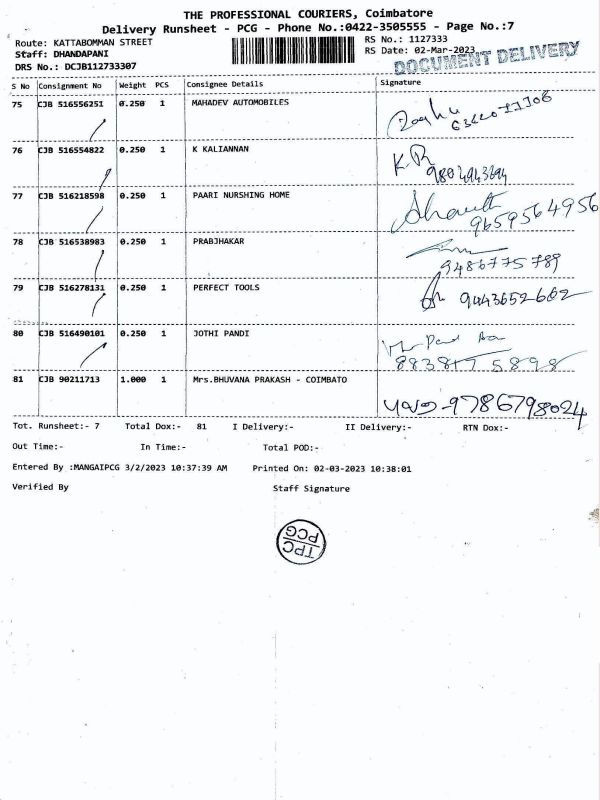 THE PROFESSIONAL COURIERS, Coimbatore
Delivery Runsheet - PCG - Phone No.:0422-3505555 - Page No.:7
Route: KATTABOMMAN STREET RS No.: 1127333
Staff: DHANDAPANI RS Date: 02-Mar-2023
DOCUMENT DELIVERY
DRS No.: DCJB112733307
S No Consignment No Weight PCS Consignee Details Signature
75 CJB 516556251 0.250 1 MAHADEV AUTOMOBILES
76 CJB 516554822 0.250 1 K KALIANNAN K.R
9804943694
77 CJB 516218598 0.250 1 PAARI NURSHING HOME
9659564956
78 CJB 516538983 0.250 1 PRABJHAKAR
9486775789
79 CJB 516278131 0.250 1 PERFECT TOOLS 9443652662
80 CJB 516490101 0.250 1 JOTHI PANDI
8838175898
81 CJB 90211713 1.000 1 Mrs.BHUVANA PRAKASH - COIMBATO
9786798024
Tot. Runsheet:- 7 Total Dox:- 81 I Delivery:- II Delivery:- RTN Dox:-
Out Time:- In Time:- Total POD:-
Entered By :MANGAIPCG 3/2/2023 10:37:39 AM Printed On: 02-03-2023 10:38:01
Verified By Staff Signature
TPC
PCG